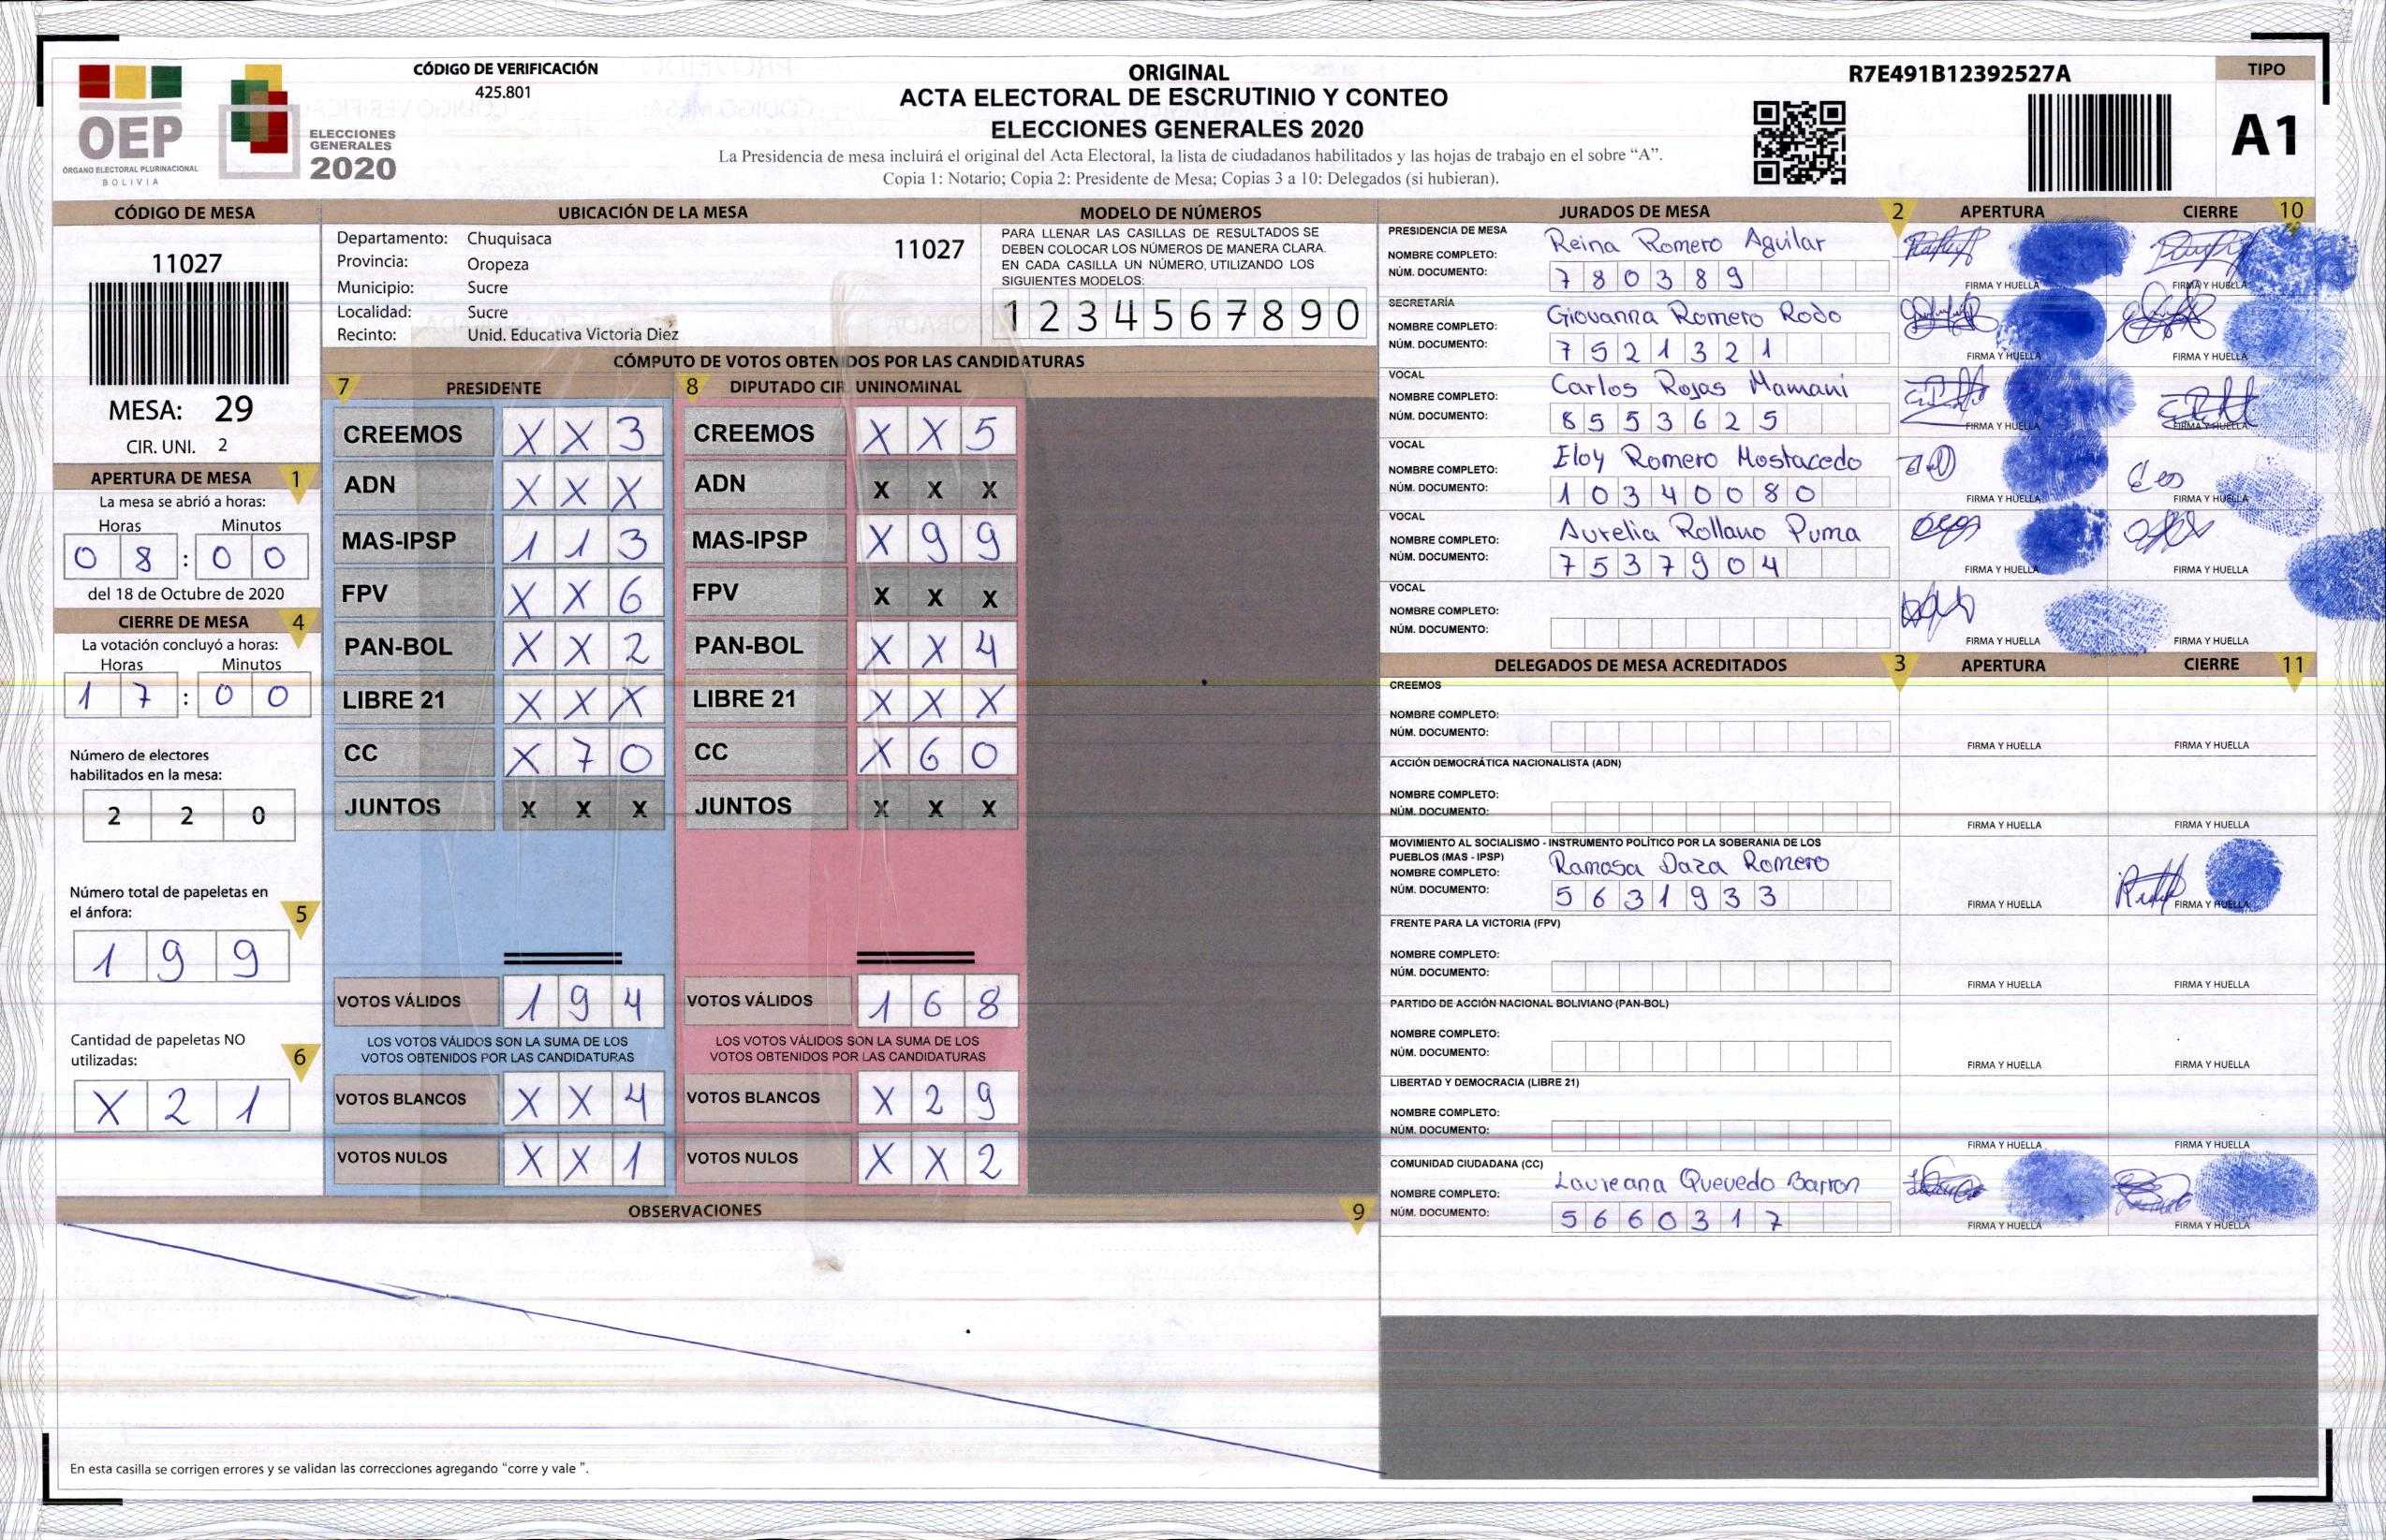 OEP
ÓRGANO ELECTORAL PLURINACIONAL
BOLIVIA
ELECCIONES
GENERALES
2020
CÓDIGO DE VERIFICACIÓN
425.801
ORIGINAL
ACTA ELECTORAL DE ESCRUTINIO Y CONTEO
ELECCIONES GENERALES 2020
La Presidencia de mesa incluirá el original del Acta Electoral, la lista de ciudadanos habilitados y las hojas de trabajo en el sobre “A”.
Copia 1: Notario; Copia 2: Presidente de Mesa; Copias 3 a 10: Delegados (si hubieran).
R7E491B12392527A
TIPO
A1
CÓDIGO DE MESA
11027
MESA: 29
CIR. UNI. 2
APERTURA DE MESA 1
La mesa se abrió a horas:
Horas Minutos
0 8 : 0 0
del 18 de Octubre de 2020
CIERRE DE MESA 4
La votación concluyó a horas:
Horas Minutos
1 7 : 0 0
Número de electores
habilitados en la mesa:
2 2 0
Número total de papeletas en
el ánfora: 5
1 9 9
Cantidad de papeletas NO
utilizadas: 6
X 2 1
UBICACIÓN DE LA MESA
Departamento: Chuquisaca 11027
Provincia: Oropeza
Municipio: Sucre
Localidad: Sucre
Recinto: Unid. Educativa Victoria Diez
MODELO DE NÚMEROS
PARA LLENAR LAS CASILLAS DE RESULTADOS SE
DEBEN COLOCAR LOS NÚMEROS DE MANERA CLARA.
EN CADA CASILLA UN NÚMERO, UTILIZANDO LOS
SIGUIENTES MODELOS:
1 2 3 4 5 6 7 8 9 0
CÓMPUTO DE VOTOS OBTENIDOS POR LAS CANDIDATURAS
7 PRESIDENTE
CREEMOS X X 3
ADN X X X
MAS-IPSP 1 1 3
FPV X X 6
PAN-BOL X X 2
LIBRE 21 X X X
CC X 7 0
JUNTOS X X X
VOTOS VÁLIDOS 1 9 4
LOS VOTOS VÁLIDOS SON LA SUMA DE LOS
VOTOS OBTENIDOS POR LAS CANDIDATURAS
VOTOS BLANCOS X X 4
VOTOS NULOS X X 1
8 DIPUTADO CIR. UNINOMINAL
CREEMOS X X 5
ADN X X X
MAS-IPSP X 9 9
FPV X X X
PAN-BOL X X 4
LIBRE 21 X X X
CC X 6 0
JUNTOS X X X
VOTOS VÁLIDOS 1 6 8
LOS VOTOS VÁLIDOS SON LA SUMA DE LOS
VOTOS OBTENIDOS POR LAS CANDIDATURAS
VOTOS BLANCOS X 2 9
VOTOS NULOS X X 2
OBSERVACIONES 9
En esta casilla se corrigen errores y se validan las correcciones agregando “corre y vale ”.
JURADOS DE MESA 2 APERTURA CIERRE 10
PRESIDENCIA DE MESA
NOMBRE COMPLETO: Reina Romero Aguilar
NÚM. DOCUMENTO: 7 8 0 3 8 9
FIRMA Y HUELLA FIRMA Y HUELLA
SECRETARÍA
NOMBRE COMPLETO: Giovanna Romero Rodo
NÚM. DOCUMENTO: 7 5 2 1 3 2 1
FIRMA Y HUELLA FIRMA Y HUELLA
VOCAL
NOMBRE COMPLETO: Carlos Rojas Mamani
NÚM. DOCUMENTO: 8 5 5 3 6 2 5
FIRMA Y HUELLA FIRMA Y HUELLA
VOCAL
NOMBRE COMPLETO: Eloy Romero Mostacedo
NÚM. DOCUMENTO: 1 0 3 4 0 0 8 0
FIRMA Y HUELLA FIRMA Y HUELLA
VOCAL
NOMBRE COMPLETO: Aurelia Rollano Puma
NÚM. DOCUMENTO: 7 5 3 7 9 0 4
FIRMA Y HUELLA FIRMA Y HUELLA
VOCAL
NOMBRE COMPLETO:
NÚM. DOCUMENTO:
FIRMA Y HUELLA FIRMA Y HUELLA
DELEGADOS DE MESA ACREDITADOS 3 APERTURA CIERRE 11
CREEMOS
NOMBRE COMPLETO:
NÚM. DOCUMENTO:
FIRMA Y HUELLA FIRMA Y HUELLA
ACCIÓN DEMOCRÁTICA NACIONALISTA (ADN)
NOMBRE COMPLETO:
NÚM. DOCUMENTO:
FIRMA Y HUELLA FIRMA Y HUELLA
MOVIMIENTO AL SOCIALISMO - INSTRUMENTO POLÍTICO POR LA SOBERANIA DE LOS
PUEBLOS (MAS - IPSP)
NOMBRE COMPLETO: Ramosa Daza Romero
NÚM. DOCUMENTO: 5 6 3 1 9 3 3
FIRMA Y HUELLA FIRMA Y HUELLA
FRENTE PARA LA VICTORIA (FPV)
NOMBRE COMPLETO:
NÚM. DOCUMENTO:
FIRMA Y HUELLA FIRMA Y HUELLA
PARTIDO DE ACCIÓN NACIONAL BOLIVIANO (PAN-BOL)
NOMBRE COMPLETO:
NÚM. DOCUMENTO:
FIRMA Y HUELLA FIRMA Y HUELLA
LIBERTAD Y DEMOCRACIA (LIBRE 21)
NOMBRE COMPLETO:
NÚM. DOCUMENTO:
FIRMA Y HUELLA FIRMA Y HUELLA
COMUNIDAD CIUDADANA (CC)
NOMBRE COMPLETO: Laureana Quevedo Barron
NÚM. DOCUMENTO: 5 6 6 0 3 1 7
FIRMA Y HUELLA FIRMA Y HUELLA